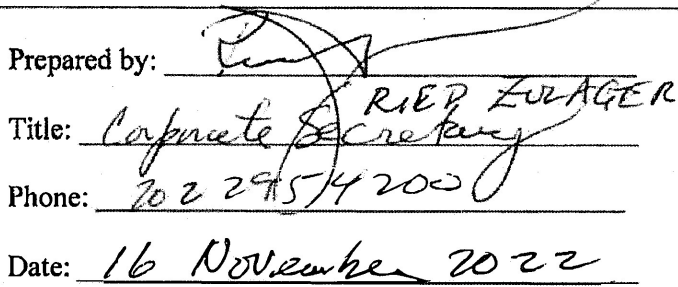 Prepared by:
RIED ZULAGER
Title: Corporate Secretary
Phone: 202 295 4200
Date: 16 November 2022